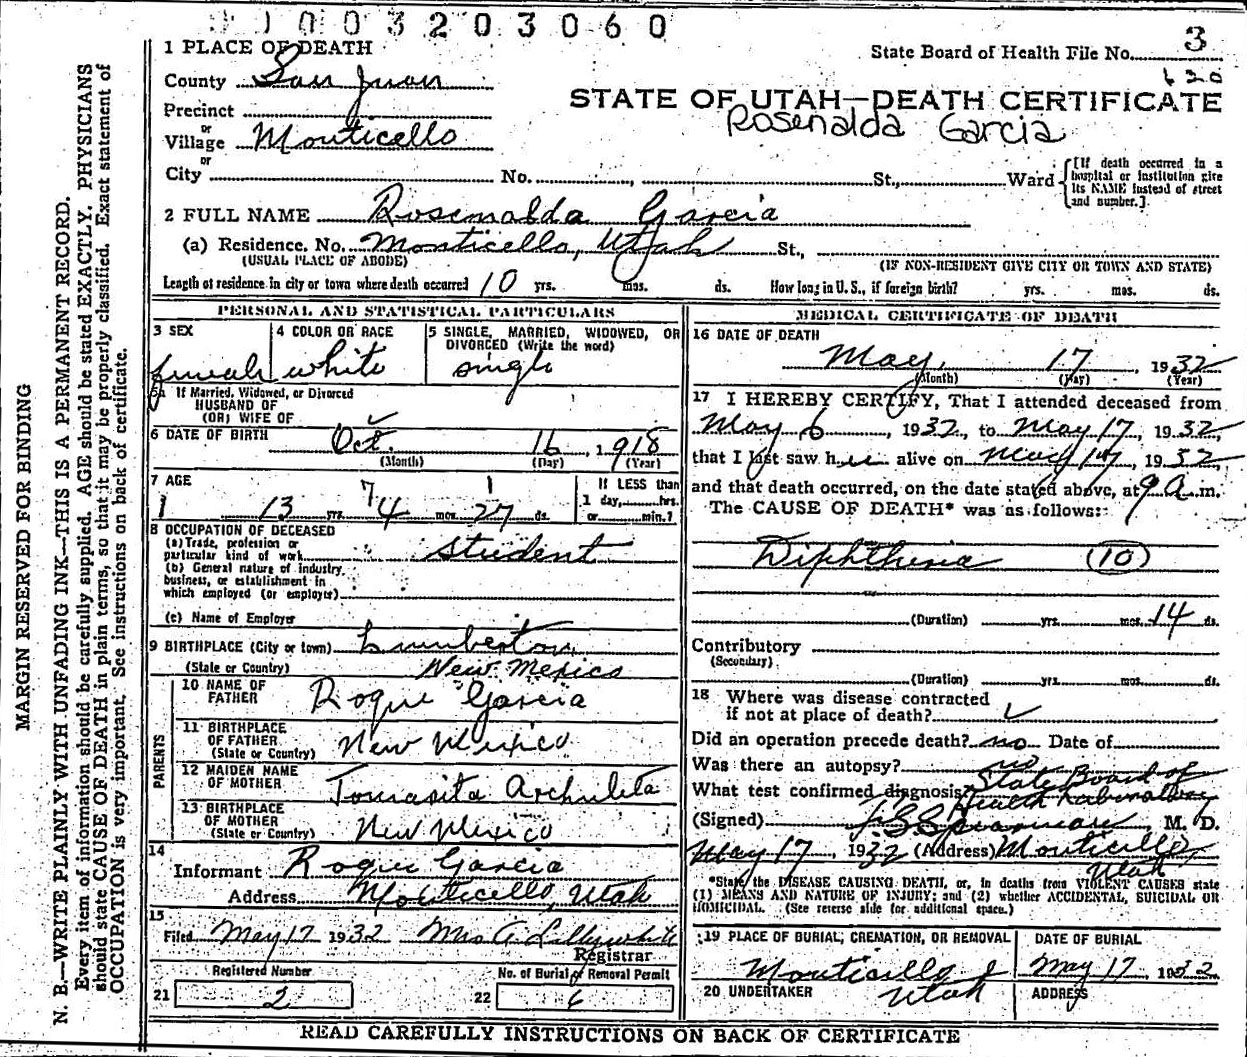 0003203060
1 PLACE OF DEATH
State Board of Health File No. 3
County San Juan
620
STATE OF UTAH—DEATH CERTIFICATE
Precinct
Rosenalda Garcia
or
Village Monticello
or
City No. St., Ward [If death occurred in a hospital or institution give its NAME instead of street and number.]
2 FULL NAME Rosenalda Garcia
(a) Residence. No. Monticello, Utah St.,
(USUAL PLACE OF ABODE) (IF NON-RESIDENT GIVE CITY OR TOWN AND STATE)
Length of residence in city or town where death occurred 10 yrs. mos. ds. How long in U. S., if foreign birth? yrs. mos. ds.
PERSONAL AND STATISTICAL PARTICULARS
3 SEX
female
4 COLOR OR RACE
white
5 SINGLE, MARRIED, WIDOWED, OR DIVORCED (Write the word)
single
5a If Married, Widowed, or Divorced
HUSBAND OF
(OR) WIFE OF
6 DATE OF BIRTH Oct. 16, 1918
(Month) (Day) (Year)
7 AGE
7 1
13 yrs. 4 mos. 27 ds.
If LESS than
1 day, hrs.
or min.?
8 OCCUPATION OF DECEASED
(a) Trade, profession or
particular kind of work student
(b) General nature of industry,
business, or establishment in
which employed (or employer)
(c) Name of Employer
9 BIRTHPLACE (City or town) Lumberton
(State or Country) New Mexico
PARENTS
10 NAME OF FATHER Roque Garcia
11 BIRTHPLACE OF FATHER (State or Country) New Mexico
12 MAIDEN NAME OF MOTHER Tomasita Archuleta
13 BIRTHPLACE OF MOTHER (State or Country) New Mexico
14
Informant Roque Garcia
Address Monticello, Utah
15
Filed May 17 1932 Mrs A Lillywhite
Registrar
Registered Number
21 2
No. of Burial or Removal Permit
22 6
MEDICAL CERTIFICATE OF DEATH
16 DATE OF DEATH
May, 17, 1932
(Month) (Day) (Year)
17 I HEREBY CERTIFY, That I attended deceased from
May 6, 1932, to May 17, 1932,
that I last saw her alive on May 17, 1932
and that death occurred, on the date stated above, at 9 a. m.
The CAUSE OF DEATH* was as follows:
Diphtheria (10)
(Duration) yrs. mos. 14 ds.
Contributory
(Secondary)
(Duration) yrs. mos. ds.
18 Where was disease contracted
if not at place of death?
Did an operation precede death? no Date of
Was there an autopsy? no
What test confirmed diagnosis? State Board of Health Laboratory
(Signed) M. D.
May 17, 1932 (Address) Monticello Utah
*State the DISEASE CAUSING DEATH, or, in deaths from VIOLENT CAUSES state
(1) MEANS AND NATURE OF INJURY; and (2) whether ACCIDENTAL, SUICIDAL OR
HOMICIDAL. (See reverse side for additional space.)
19 PLACE OF BURIAL, CREMATION, OR REMOVAL
Monticello Utah
DATE OF BURIAL
May 17, 1932
20 UNDERTAKER
ADDRESS
READ CAREFULLY INSTRUCTIONS ON BACK OF CERTIFICATE
MARGIN RESERVED FOR BINDING
N. B.—WRITE PLAINLY WITH UNFADING INK—THIS IS A PERMANENT RECORD.
Every item of information should be carefully supplied. AGE should be stated EXACTLY. PHYSICIANS
should state CAUSE OF DEATH in plain terms, so that it may be properly classified. Exact statement of
OCCUPATION is very important. See instructions on back of certificate.